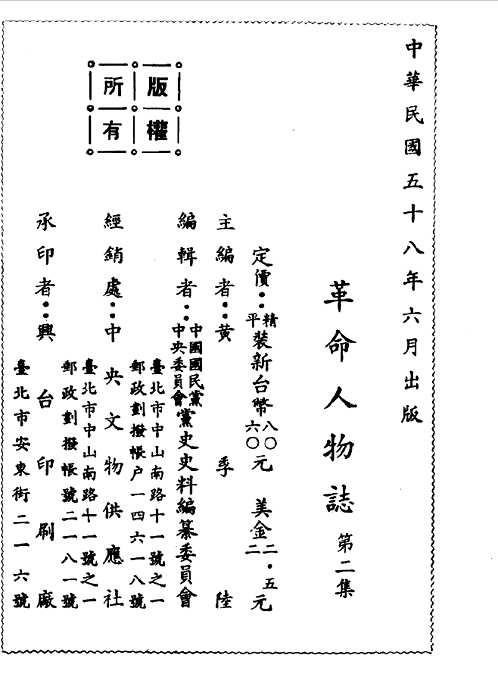 中華民國五十八年六月出版
革命人物誌 第二集
定價：精平裝新台幣八〇六〇元 美金二・五二元
主編者：黃季陸
編輯者：中國國民黨中央委員會黨史史料編纂委員會
臺北市中山南路十一號之一
郵政劃撥帳戶一四六一八號
經銷處：中央文物供應社
臺北市中山南路十一號之一
郵政劃撥帳號二一八一號
承印者：興台印刷廠
臺北市安東街二一六號
版權
所有